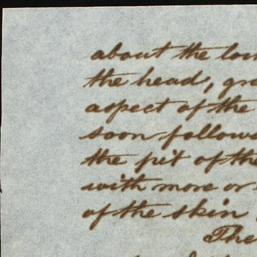 about the
the head,
aspect of the
soon
the pit of the
with more or
of the skin
The